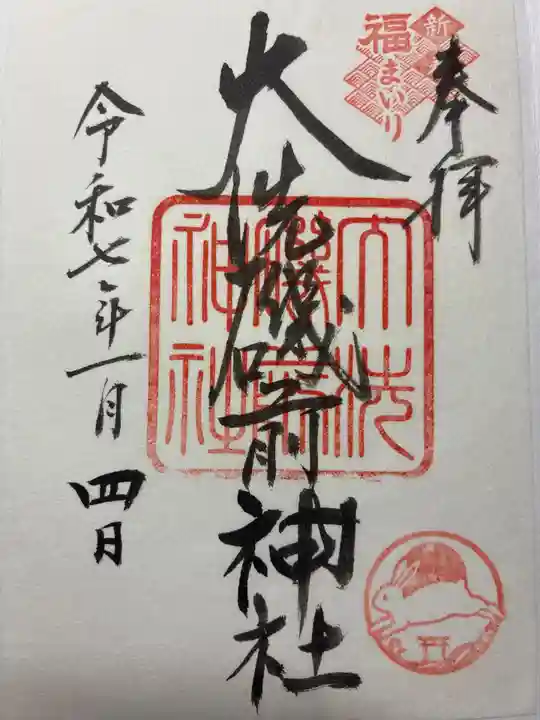 奉拝
新春
福まいり
大洗磯前神社
大洗
磯前
神社
令和七年一月四日